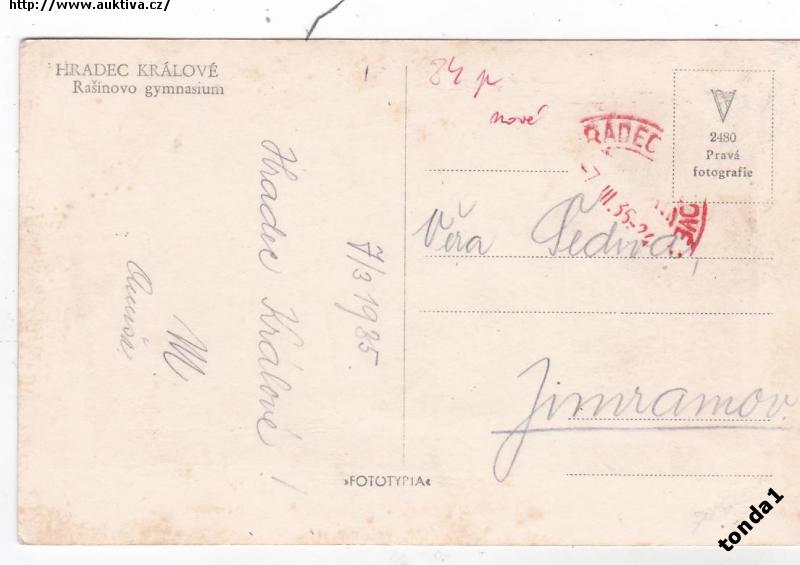 http://www.auktiva.cz/
HRADEC KRÁLOVÉ
Rašínovo gymnasium
Hradec Králové!
7/3 1935.
M.
84 p
nové
HRADEC
7 III.35-
2480
Pravá
fotografie
Věra Šedivá,
Jimramov.
»FOTOTYPIA«
tonda1